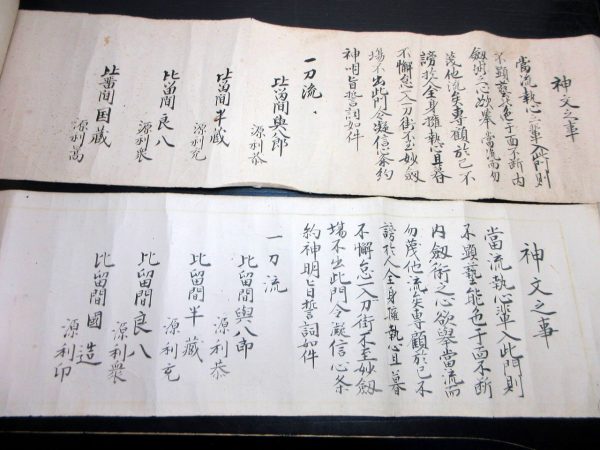 神文之事
當流執心之輩入此門則
不顕藝能色于面不断内
劔術之心欲挙當流而勿
蔑他流矣専顧於己不
謗於人全身擁執心且暮
不懈怠入刀街不至妙劔
場不出此門令凝信心条約
神明旨誓詞如件
一刀流
比留間與八郎
源利恭
比留間半蔵
源利充
比留間良八
源利衆
比留間国蔵
源利高
神文之事
當流執心輩入此門則
不顕藝能色于面不断
内劔術之心欲挙當流而
勿蔑他流矣専顧於己不
謗於人全身擁執心且暮
不懈怠入刀街不至妙劔
場不出此門令凝信心条
約神明旨誓詞如件
一刀流
比留間與八郎
源利恭
比留間半藏
源利充
比留間良八
源利衆
比留間國造
源利印